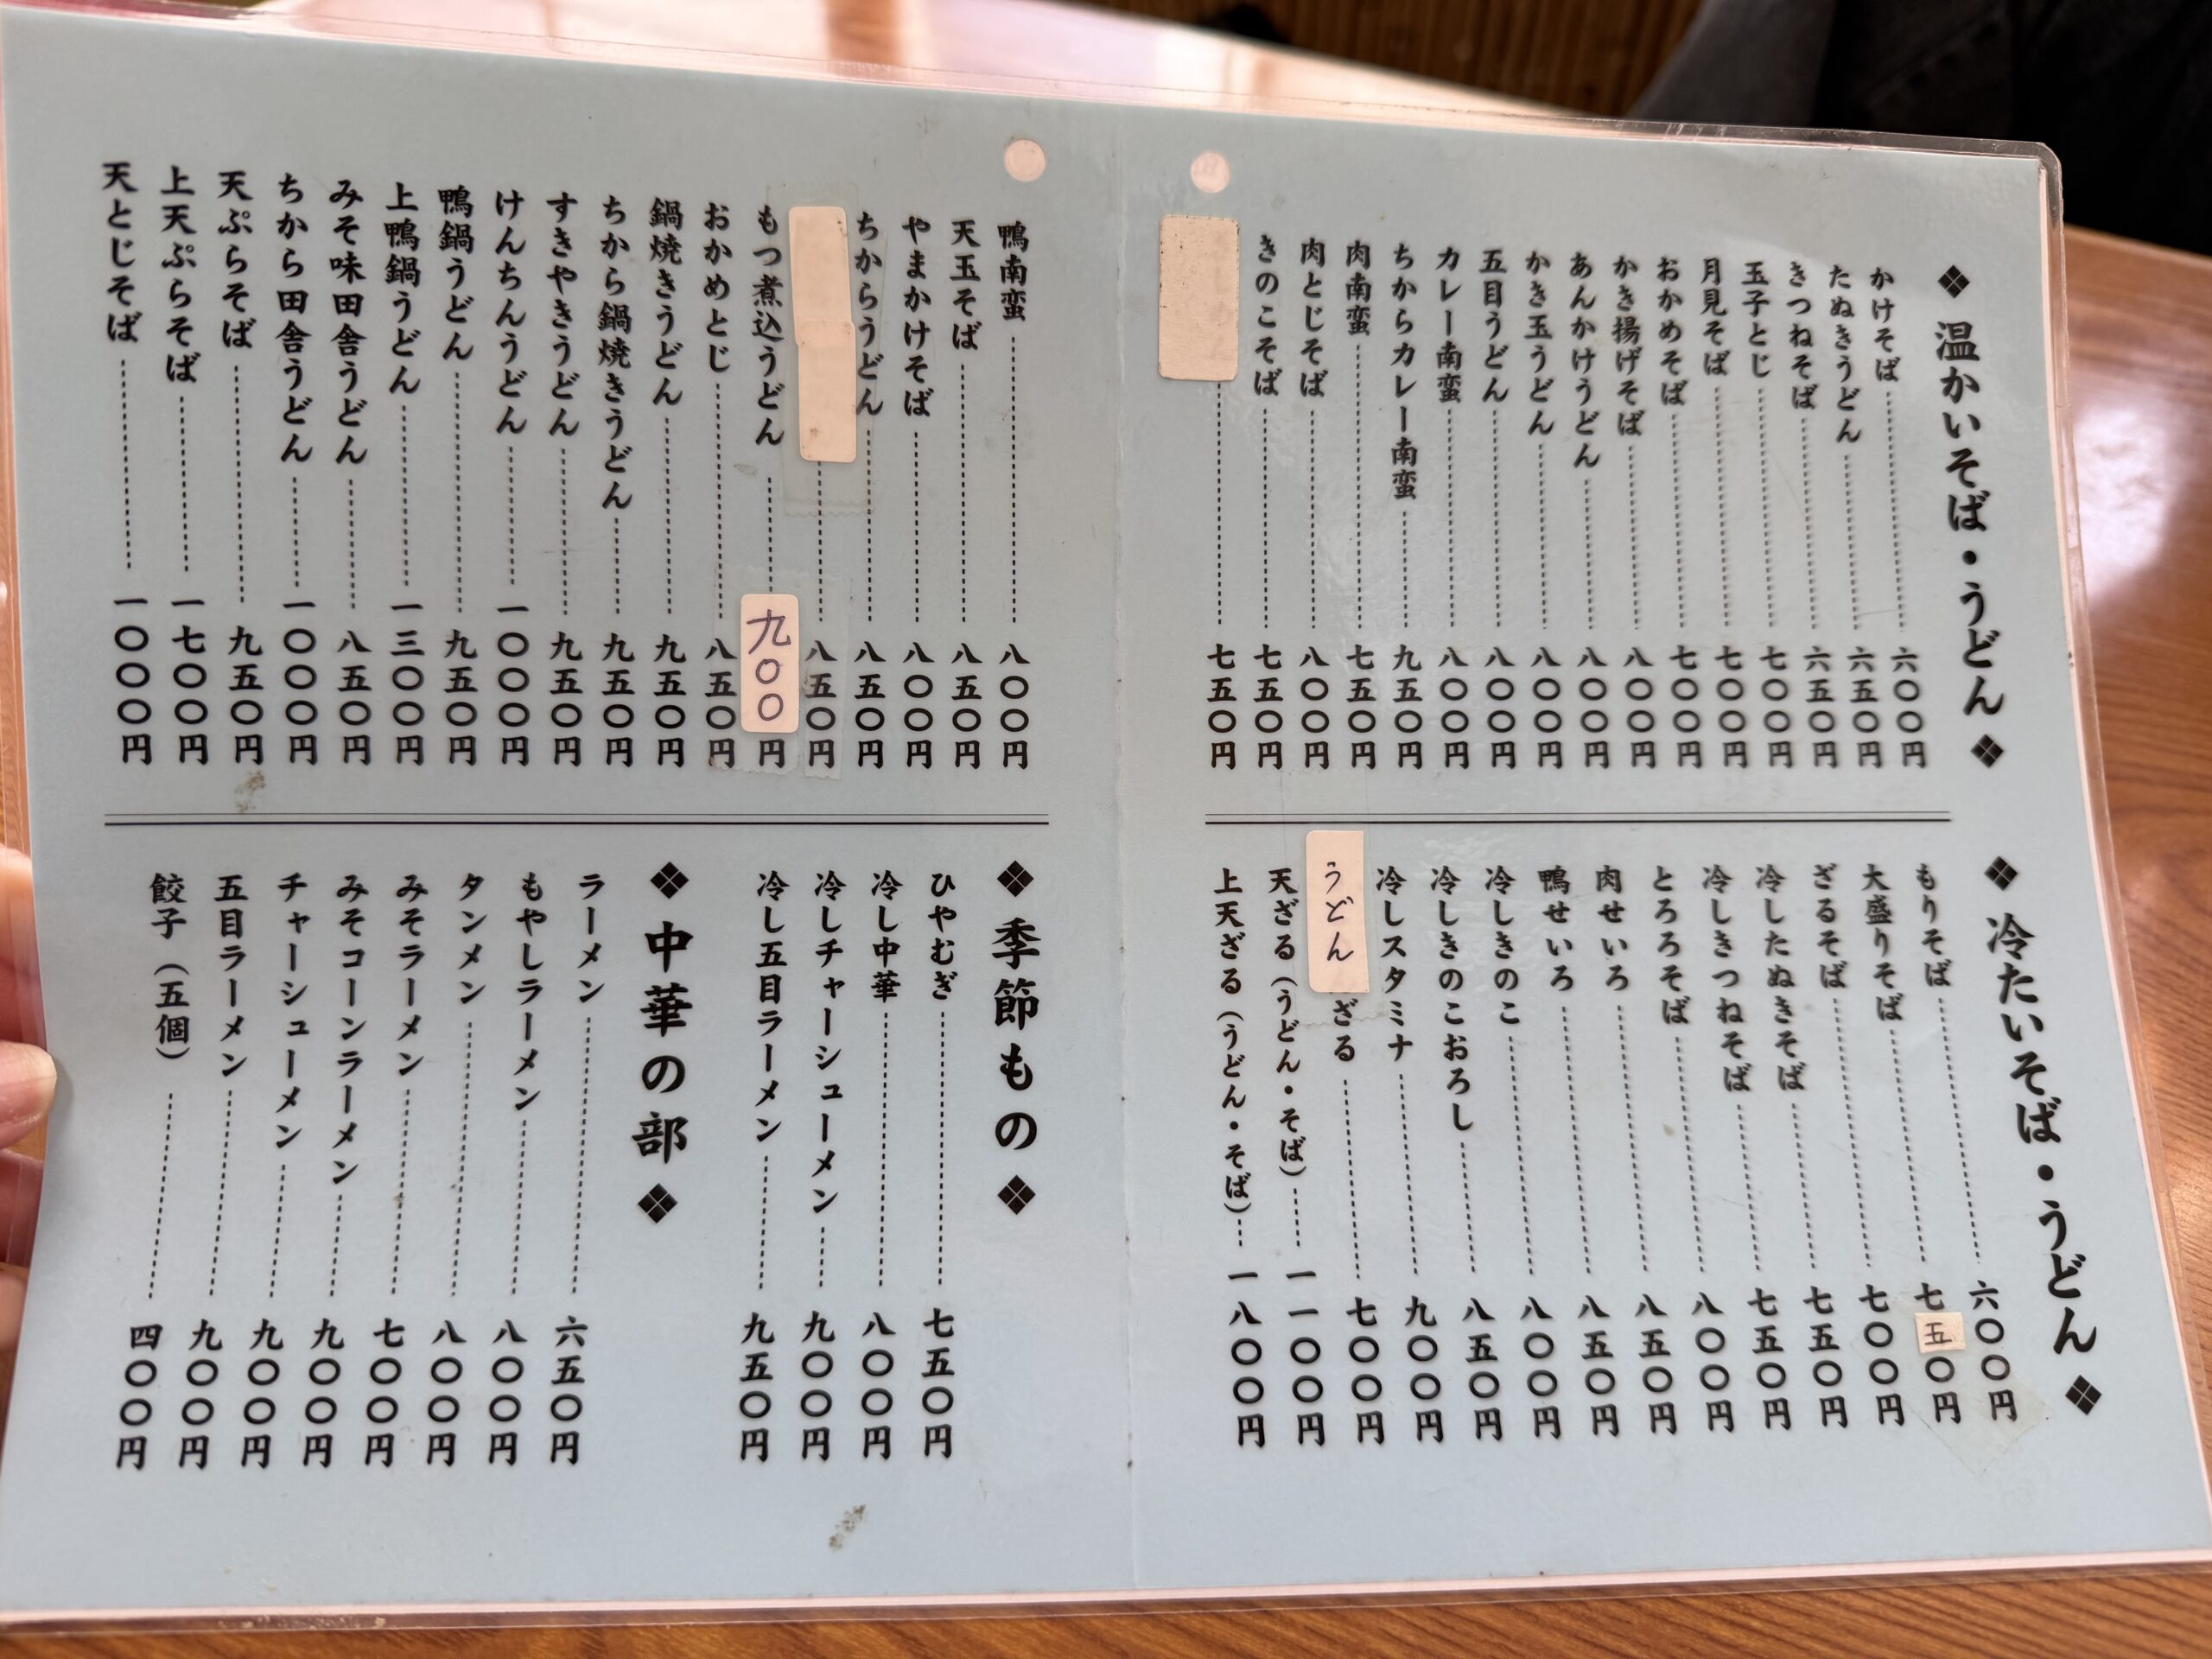 ❖温かいそば・うどん❖
かけそば 六〇〇円
たぬきうどん 六五〇円
きつねそば 六五〇円
玉子とじ 七〇〇円
月見そば 七〇〇円
おかめそば 七〇〇円
かき揚げそば 八〇〇円
あんかけうどん 八〇〇円
かき玉うどん 八〇〇円
五目うどん 八〇〇円
カレー南蛮 八〇〇円
ちからカレー南蛮 九五〇円
肉南蛮 七五〇円
肉とじそば 八〇〇円
きのこそば 七五〇円
七五〇円
鴨南蛮 八〇〇円
天玉そば 八五〇円
やまかけそば 八〇〇円
ちからうどん 八五〇円
八五〇円
もつ煮込うどん 九〇〇円
おかめとじ 八五〇円
鍋焼きうどん 九五〇円
ちから鍋焼きうどん 九五〇円
すきやきうどん 九五〇円
けんちんうどん 一〇〇〇円
鴨鍋うどん 九五〇円
上鴨鍋うどん 一三〇〇円
みそ味田舎うどん 八五〇円
ちから田舎うどん 一〇〇〇円
天ぷらそば 九五〇円
上天ぷらそば 一七〇〇円
天とじそば 一〇〇〇円
❖冷たいそば・うどん❖
もりそば 六〇〇円
大盛りそば 七五〇円
ざるそば 七〇〇円
冷したぬきそば 七五〇円
冷しきつねそば 七五〇円
とろろそば 八〇〇円
肉せいろ 八五〇円
鴨せいろ 八五〇円
冷しきのこ 八〇〇円
冷しきのこおろし 八五〇円
冷しスタミナ 九〇〇円
うどんざる 七〇〇円
天ざる（うどん・そば） 一一〇〇円
上天ざる（うどん・そば） 一八〇〇円
❖季節もの❖
ひやむぎ 七五〇円
冷し中華 八〇〇円
冷しチャーシューメン 九〇〇円
冷し五目ラーメン 九五〇円
❖中華の部❖
ラーメン 六五〇円
もやしラーメン 八〇〇円
タンメン 八〇〇円
みそラーメン 七〇〇円
みそコーンラーメン 九〇〇円
チャーシューメン 九〇〇円
五目ラーメン 九〇〇円
餃子（五個） 四〇〇円